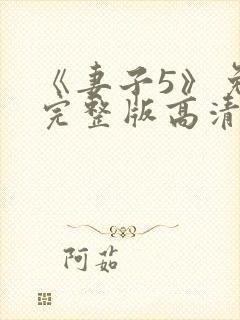 《妻子5》免
完整版高清
阿茹